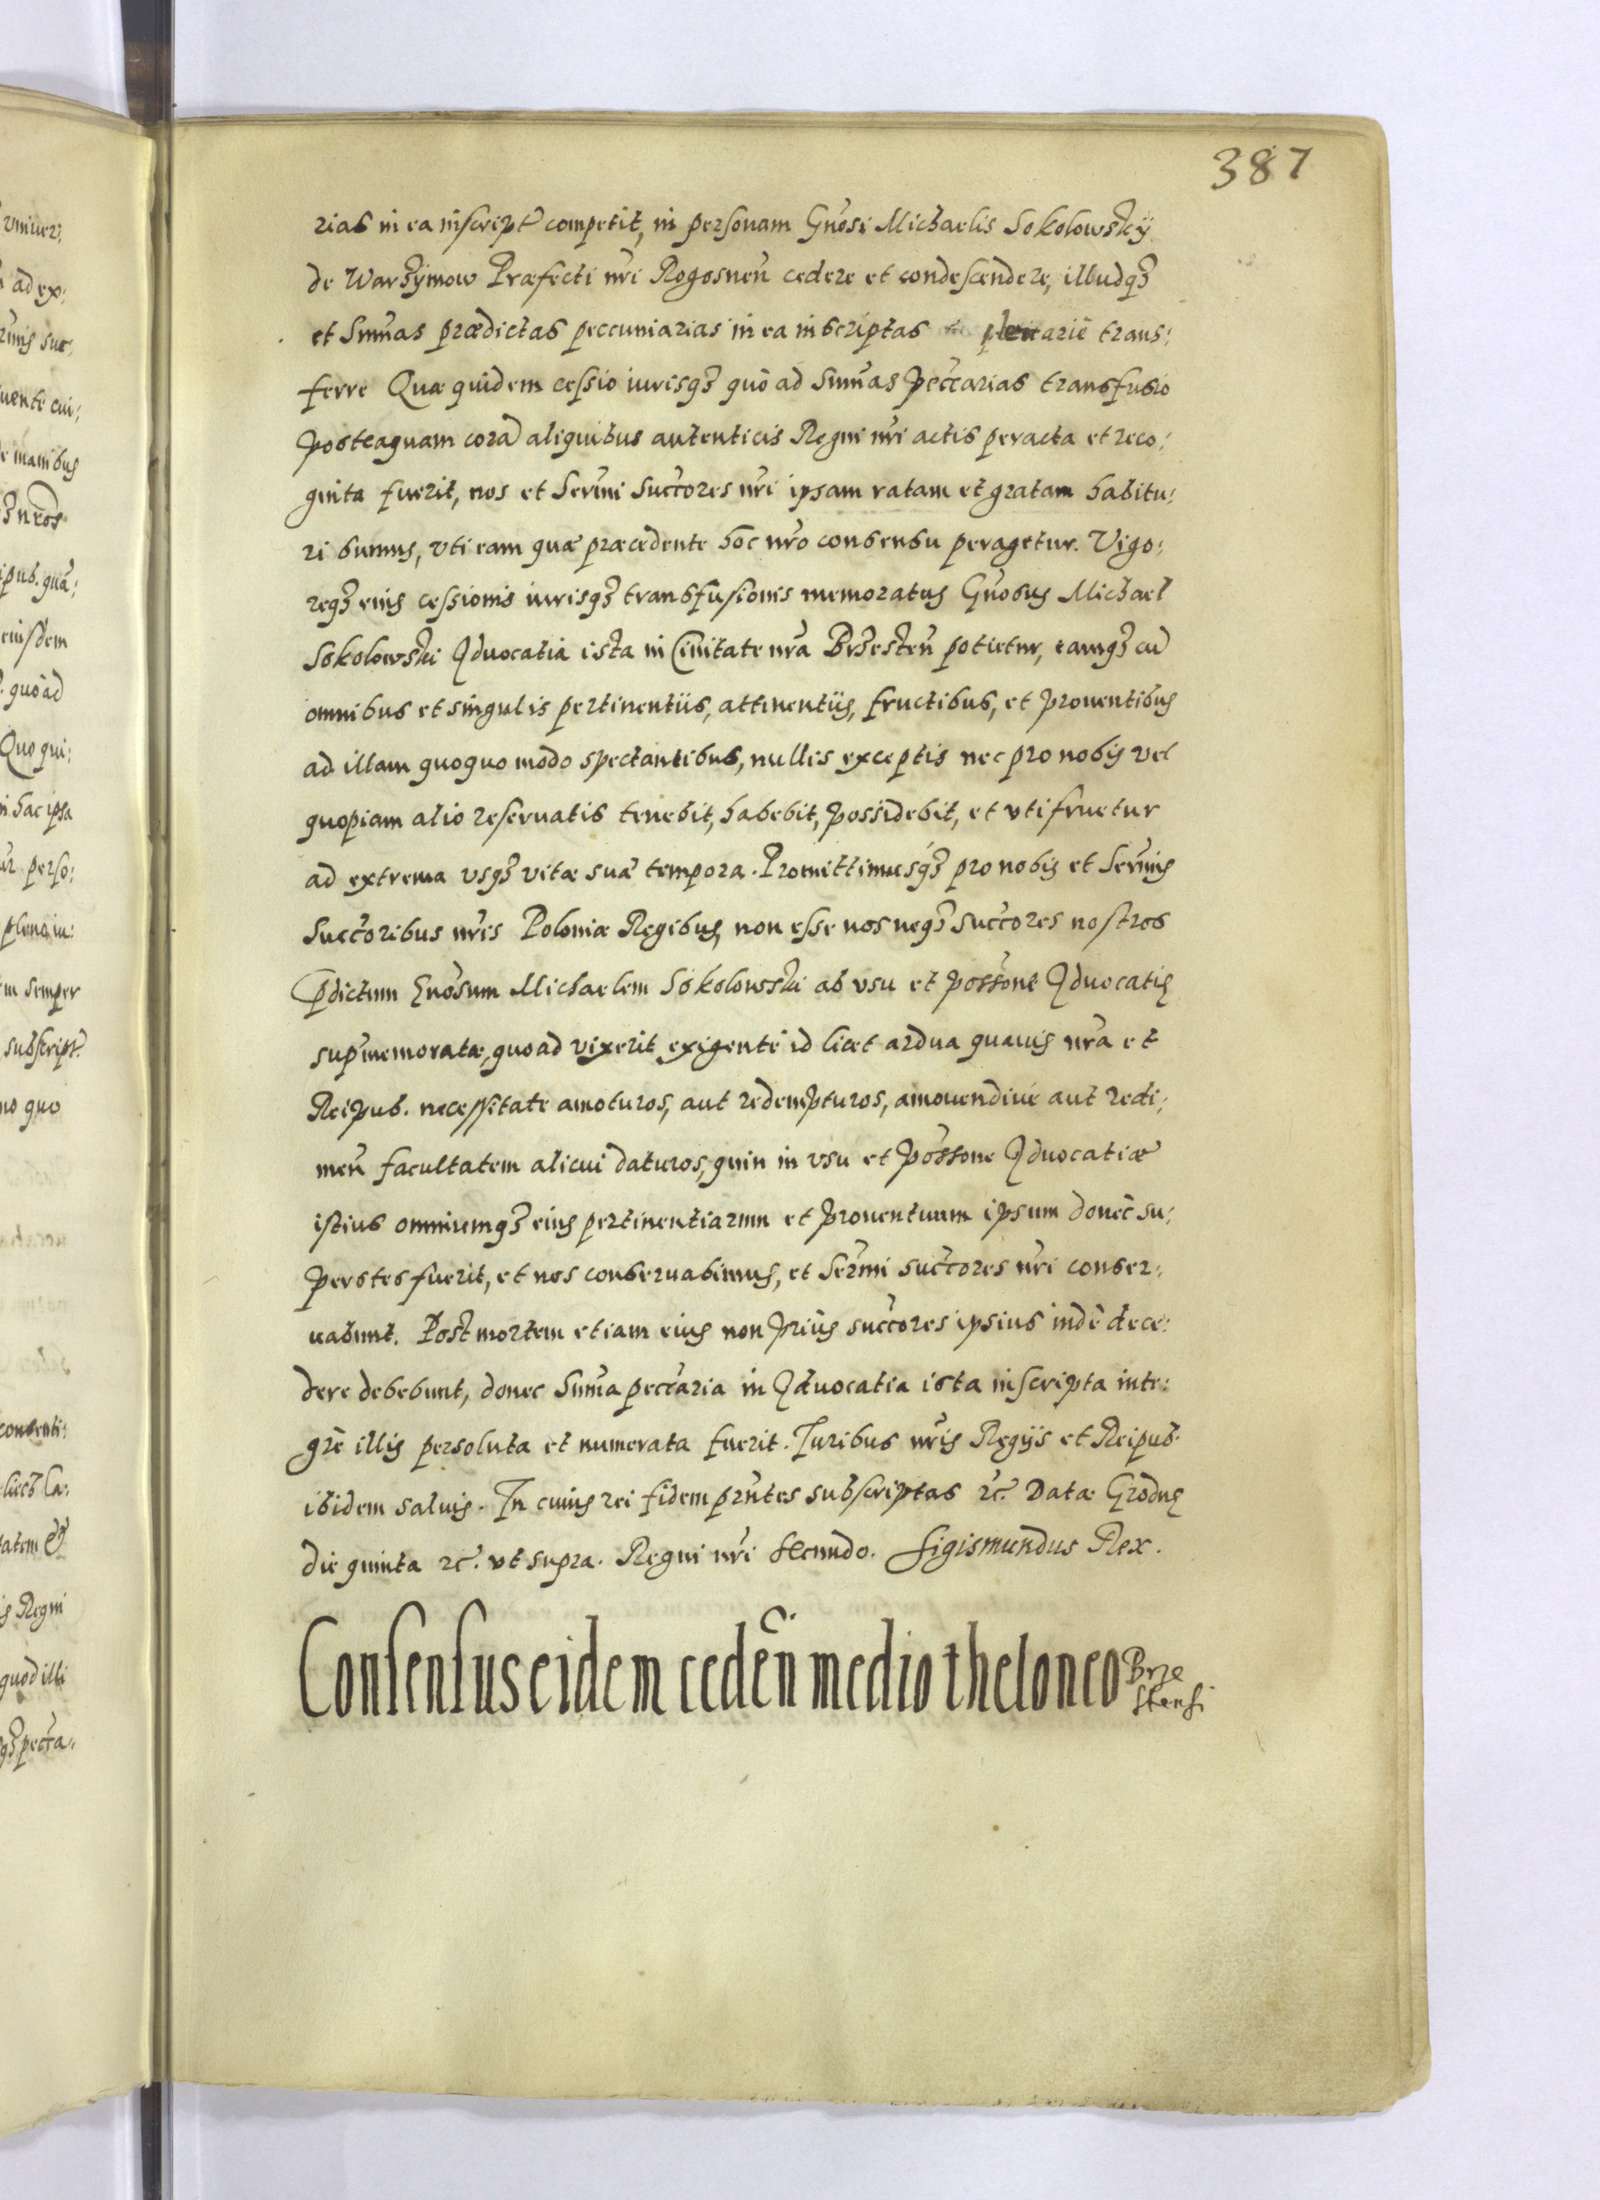 387
rias in ea inscript competit, in personam Gnosi Michaelis Sokolowskÿ
de Warzÿmow Præfecti nri Rogosnen cedere et condescendere, illudqз
et Sumas prædictas peccuniarias in ea inscriptas plenariè trans:
ferre Quæ quidem cessio iurisqз quò ad Sumas peccarias transfusio
posteaquam corā aliquibus autenticis Regni nri actis peracta et reco:
gnita fuerit, nos et Sermi Succores nri ipsam ratam et gratam habitu:
ri sumus, vti eam quæ præcedente hoc nro consensu peragetur. Vigo:
reqз eius cessionis iurisqз transfusionis memoratus Gnosus Michael
Sokolowski Aduocatia ista in Ciuitate nra Brzesten potietur, eamqз cū
omnibus et singulis pertinentiis, attinentiis, fructibus, et prouentibus
ad illam quoquo modo spectantibus, nullis exceptis nec pro nobis vel
quopiam alio reseruatis tenebit, habebit, possidebit, et vtifruetur
ad extrema vsqз vitæ suæ tempora. Promittimusqз pro nobis et Sermis
Succoribus nris Poloniæ Regibus, non esse nos neqз succores nostros
Pdictum Gnosum Michaelem Sokolowski ab vsu et possone Aduocatiæ
supmemoratæ, quoad vixerit exigente id licet ardua quauis nra et
Reipub. necessitate amoturos, aut redempturos, amouendiue aut redi:
men facultatem alicui daturos, quin in vsu et possone Aduocatiæ
istius omniumqз eius pertinentiarum et prouentuum ipsum donec su:
perstes fuerit, et nos conseruabimus, et Sermi succores nri conser:
uabunt. Post mortem etiam eius non prius succores ipsius indè dece:
dere debebunt, donec Suma peccaria in Aduocatia ista inscripta inte:
grè illis persoluta et numerata fuerit. Iuribus nris Regijs et Reipub.
ibidem saluis. In cuius rei fidem prntes subscriptas rc. Datæ Grodnæ
die quinta rc. vt supra. Regni nri Secundo. Sigismundus Rex.
Consensus eidem cedēn medio theloneo Brze
stensi